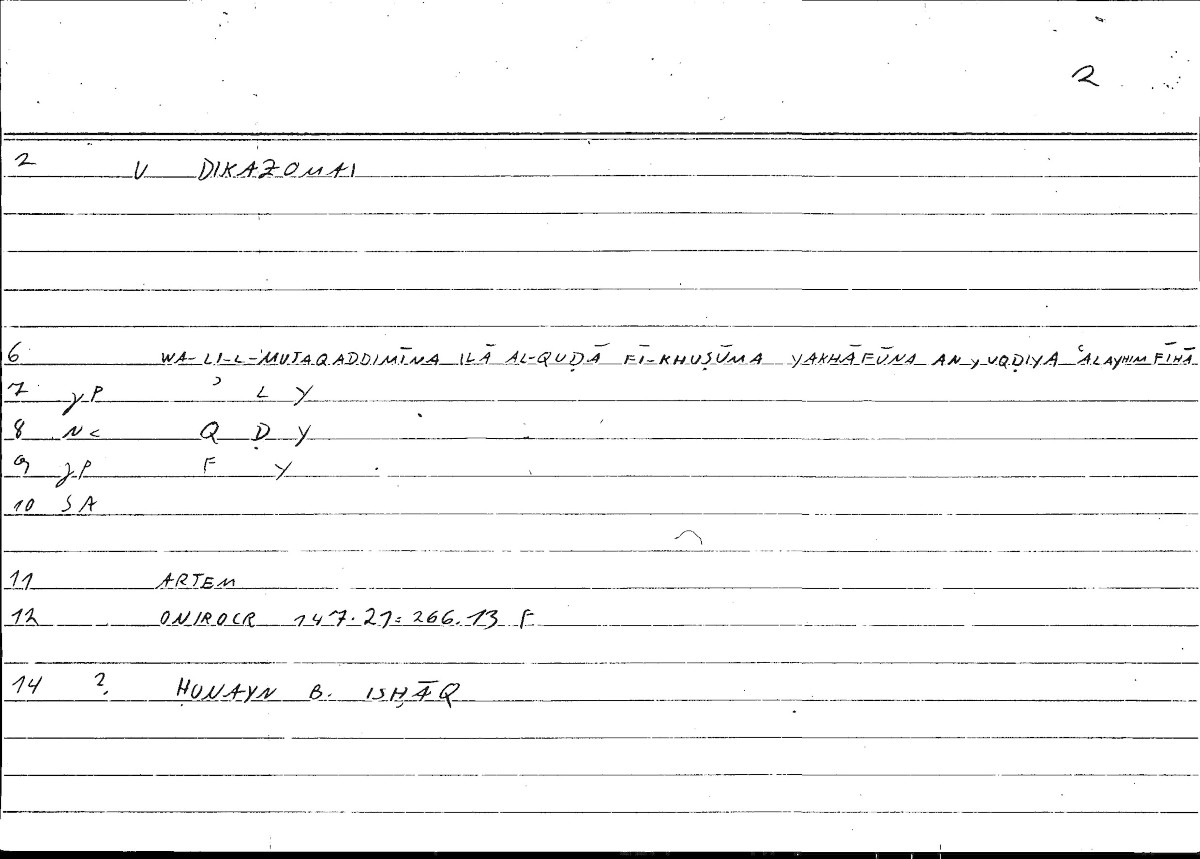 2
2 V DIKAZOMAI
6 WA-LI-L-MUTAQADDIMĪNA ILĀ AL-QUḌĀ FĪ-KHUṢŪMA YAKHĀFŪNA AN YUQḌIYA ʿALAYHIM FĪHĀ
7 γP ʾ L Y
8 NC Q Ḍ Y
9 γP F Y
10 SA
11 ARTEM
12 ONIROCR 147.21=266.13 F
14 ? ḤUNAYN B. ISḤĀQ